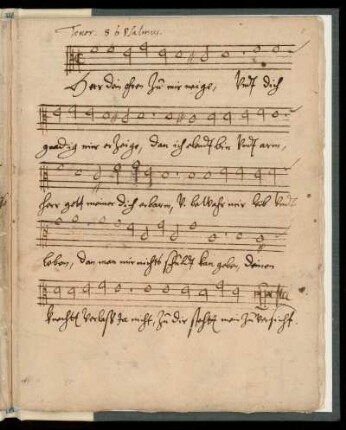 Tenor. 86 Psalmus.
Herr dein ohren zu mir neige, Undt dich
gnedig mir erzeige, dan ich elendt bin Undt arm,
Herr gott meiner dich erbarm, V. bewahr mir leib Undt
leben, dan man mir nichts schuldt kan geben, deinen
knecht Verlaß Ja nicht, zu dir steht mein zuversicht.